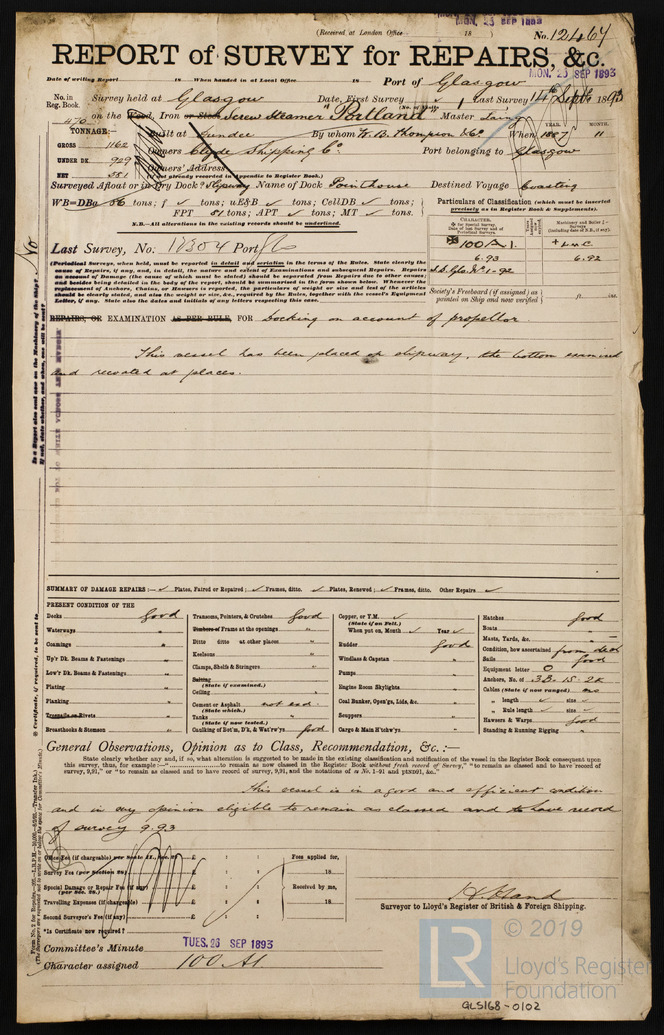 (Received at London Office 18 )
MON. 25 SEP 1893
No. 12467
REPORT of SURVEY for REPAIRS, &c.
MON. 25 SEP 1893
Date of writing Report 18 When handed in at Local Office 18 Port of Glasgow
No. in Reg. Book. Survey held at Glasgow Date, First Survey Last Survey 14th Septr 1893
(No. of Visits 1
470 on the Wood, Iron or Steel Screw Steamer Portland Master Laing
TONNAGE:—
Built at Dundee By whom W. B. Thompson & Co. When 1887 11
YEAR. MONTH.
GROSS 1162
Owners Clyde Shipping Co. Port belonging to Glasgow
UNDER DK. 929
Owners' Address
NET 551
(If not already recorded in Appendix to Register Book.)
Surveyed Afloat or in Dry Dock? Slipway Name of Dock Pointhouse Destined Voyage Coasting
WB=DBa 56 tons; f ✓ tons; uE&B ✓ tons; CellDB ✓ tons;
FPT 51 tons; APT ✓ tons; MT ✓ tons.
N.B.—All alterations in the existing records should be underlined.
Particulars of Classification (which must be inserted
precisely as in Register Book & Supplements).
CHARACTER.
✠ 100 A 1.
6.93
S.S. Gls No. 1-92
+ LMC
6.92
Society's Freeboard (if assigned) as
printed on Ship and now verified
ft. ins.
Last Survey, No. 12304 Port Gls
(Periodical Surveys, when held, must be reported in detail and seriatim in the terms of the Rules. State clearly the
cause of Repairs, if any, and, in detail, the nature and extent of Examinations and subsequent Repairs. Repairs
on account of Damage (the cause of which must be stated) should be separated from Repairs due to other causes;
and besides being detailed in the body of the report, should be summarised in the form shown below. Whenever the
replacement of Anchors, Chains, or Hawsers is reported, the particulars of weight or size and test of the articles
should be clearly stated, and also the weight or size, &c., required by the Rules, together with the vessel's Equipment
Letter, if any. State also the dates and initials of any letters respecting this case.
REPAIRS, OR EXAMINATION AS PER RULE, FOR Docking on account of propellor.
This vessel has been placed on slipway, the bottom examined
and recoated at places.
SUMMARY OF DAMAGE REPAIRS:— ✓ Plates, Faired or Repaired; ✓ Frames, ditto. ✓ Plates, Renewed; ✓ Frames, ditto. Other Repairs ✓
PRESENT CONDITION OF THE
Decks Good
Waterways "
Coamings "
Up'r Dk. Beams & Fastenings "
Low'r Dk. Beams & Fastenings "
Plating "
Planking "
Treenails or Rivets "
Breasthooks & Stemson "
Transoms, Pointers, & Crutches Good
Timbers or Frame at the openings "
Ditto ditto at other places "
Keelsons "
Clamps, Shelfs & Stringers "
Salting
(State if examined.)
Ceiling "
Cement or Asphalt not exd
(State which.)
Tanks "
(State if now tested.)
Caulking of Bot'm, D'k, & Wat'rw'ys good
Copper, or Y.M. ✓
(State if on Felt.)
When put on, Month ✓ Year ✓
Rudder Good
Windlass & Capstan "
Pumps "
Engine Room Skylights "
Coal Bunker, Open'gs, Lids, &c. "
Scuppers "
Cargo & Main H'tchw'ys "
Hatches Good
Boats "
Masts, Yards, &c. "
Condition, how ascertained from deck
Sails Good
Equipment letter O
Anchors, No. of 3B. 1S. 2K
Cables (State if now ranged) no
" length ✓ size ✓
" Rule length ✓ size ✓
Hawsers & Warps Good
Standing & Running Rigging "
General Observations, Opinion as to Class, Recommendation, &c.:—
State clearly whether any, and if so, what alteration is suggested to be made in the existing classification and notification of the vessel in the Register Book consequent upon
this survey, thus, for example:—"..................to remain as now classed in Register Book without fresh record of Survey," "to remain as classed and to have record of
survey, 9,91," or "to remain as classed and to have record of survey, 9,91, and the notations of ss No. 1-91 and pENDB1, &c."
This vessel is in a good and efficient condition
and in my opinion eligible to remain as classed and to have record
of survey 9.93
Office Fee (if chargeable) per Scale II., Sec. 27 £ : :
Survey Fee (per Section 28) £ : :
Special Damage or Repair Fee (if any) £ : :
(per Sec. 28.)
Travelling Expenses (if chargeable) £ : :
Second Surveyor's Fee (if any) £ : :
Fees applied for,
18
Received by me,
18
*Is Certificate now required?
Surveyor to Lloyd's Register of British & Foreign Shipping.
Committee's Minute TUES. 26 SEP 1893
Character assigned 100 A1.
© 2019
LR
Lloyd's Register
Foundation
GLS168-0102